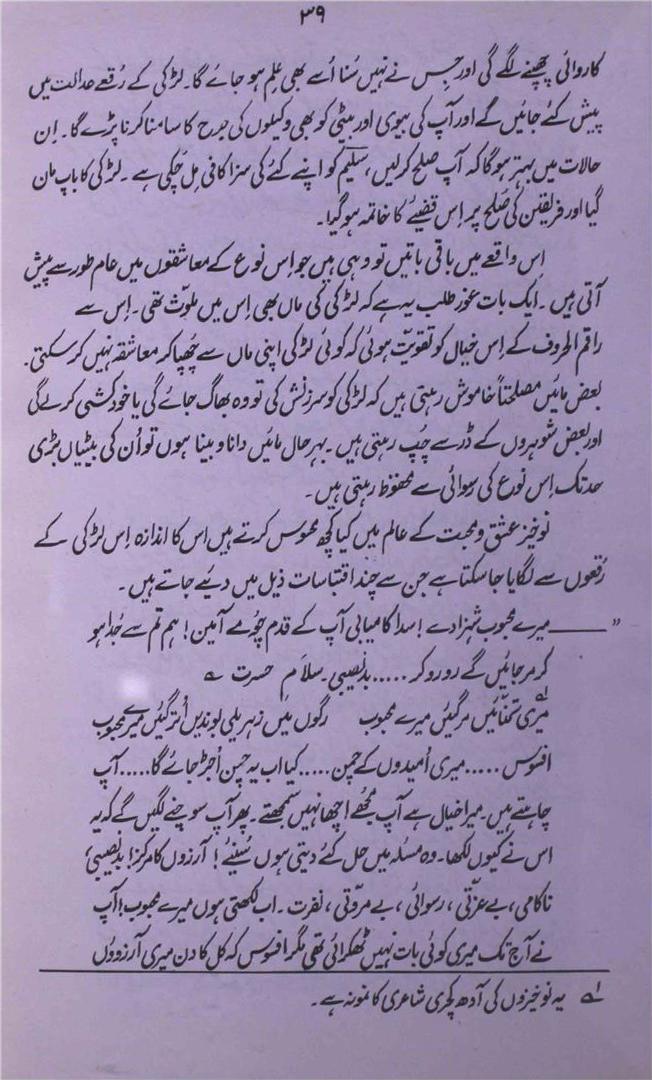 ۳۹
کاروائی چھپنے لگے گی اور جس نے نہیں سُنا اُسے بھی علم ہو جائے گا۔ لڑکی کے رُقعے عدالت میں
پیش کئے جائیں گے اور آپ کی بیوی اور بیٹی کو بھی وکیلوں کی جرح کا سامنا کرنا پڑے گا۔ اِن
حالات میں بہتر ہوگا کہ آپ صلح کرلیں، سلیم کو اپنے کئے کی سزا کافی مِل چُکی ہے۔ لڑکی کا باپ مان
گیا اور فریقین کی صُلح پر اِس قضیئے کا خاتمہ ہوگیا۔
اِس واقعے میں باقی باتیں تو وہی ہیں جو اِس نوع کے معاشقوں میں عام طور سے پیش
آتی ہیں۔ ایک بات غور طلب یہ ہے کہ لڑکی کی ماں بھی اِس میں ملوّث تھی۔ اِس سے
راقم الحروف کے اِس خیال کو تقویّت ہوئی کہ کوئی لڑکی اپنی ماں سے چُھپا کر معاشقہ نہیں کرسکتی۔
بعض مائیں مصلحتاً خاموش رہتی ہیں کہ لڑکی کو سرزنش کی تو وہ بھاگ جائے گی یا خودکشی کرلے گی
اور بعض شوہروں کے ڈر سے چُپ رہتی ہیں۔ بہرحال مائیں دانا و بینا ہوں تو اُن کی بیٹیاں بڑی
حد تک اِس نوع کی رسوائی سے محفوظ رہتی ہیں۔
نوخیز عشق و محبت کے عالم میں کیا کچھ محسوس کرتے ہیں اس کا اندازہ اِس لڑکی کے
رُقعوں سے لگایا جا سکتا ہے جن سے چند اقتباسات ذیل میں دیئے جاتے ہیں۔
"——— میرے محبوب شہزادے! سدا کامیابی آپ کے قدم چُومے آمین! ہم تم سے جُدا ہو
کر مر جائیں گے رو رو کر ..... بدنصیبی۔ سلامِ حسرت ے
میری تمنّائیں مرگئیں میرے محبوب رگوں میں زہریلی بوندیں اُتر گئیں میرے محبوب ۱ے
افسوس ..... میری اُمیدوں کے چمن ..... کیا اب یہ چمن اُجڑ جائے گا ..... آپ
چاہتے ہیں۔ میرا خیال ہے آپ مجھے اچھا نہیں سمجھتے۔ پھر آپ سوچنے لگیں گے کہ یہ
اس نے کیوں لکھا۔ وہ مسئلہ میں حل کئے دیتی ہوں سُنیئے! آرزوں کا مرکز! بدنصیبی،
ناکامی، بے عزّتی، رسوائی، بے مروّتی، نفرت۔ اب لکھتی ہوں میرے محبوب! آپ
نے آج تک میری کوئی بات نہیں ٹھکرائی تھی مگر افسوس کہ کل کا دن میری آرزووں
۱ے یہ نوخیزوں کی آدھ کچری شاعری کا نمونہ ہے۔